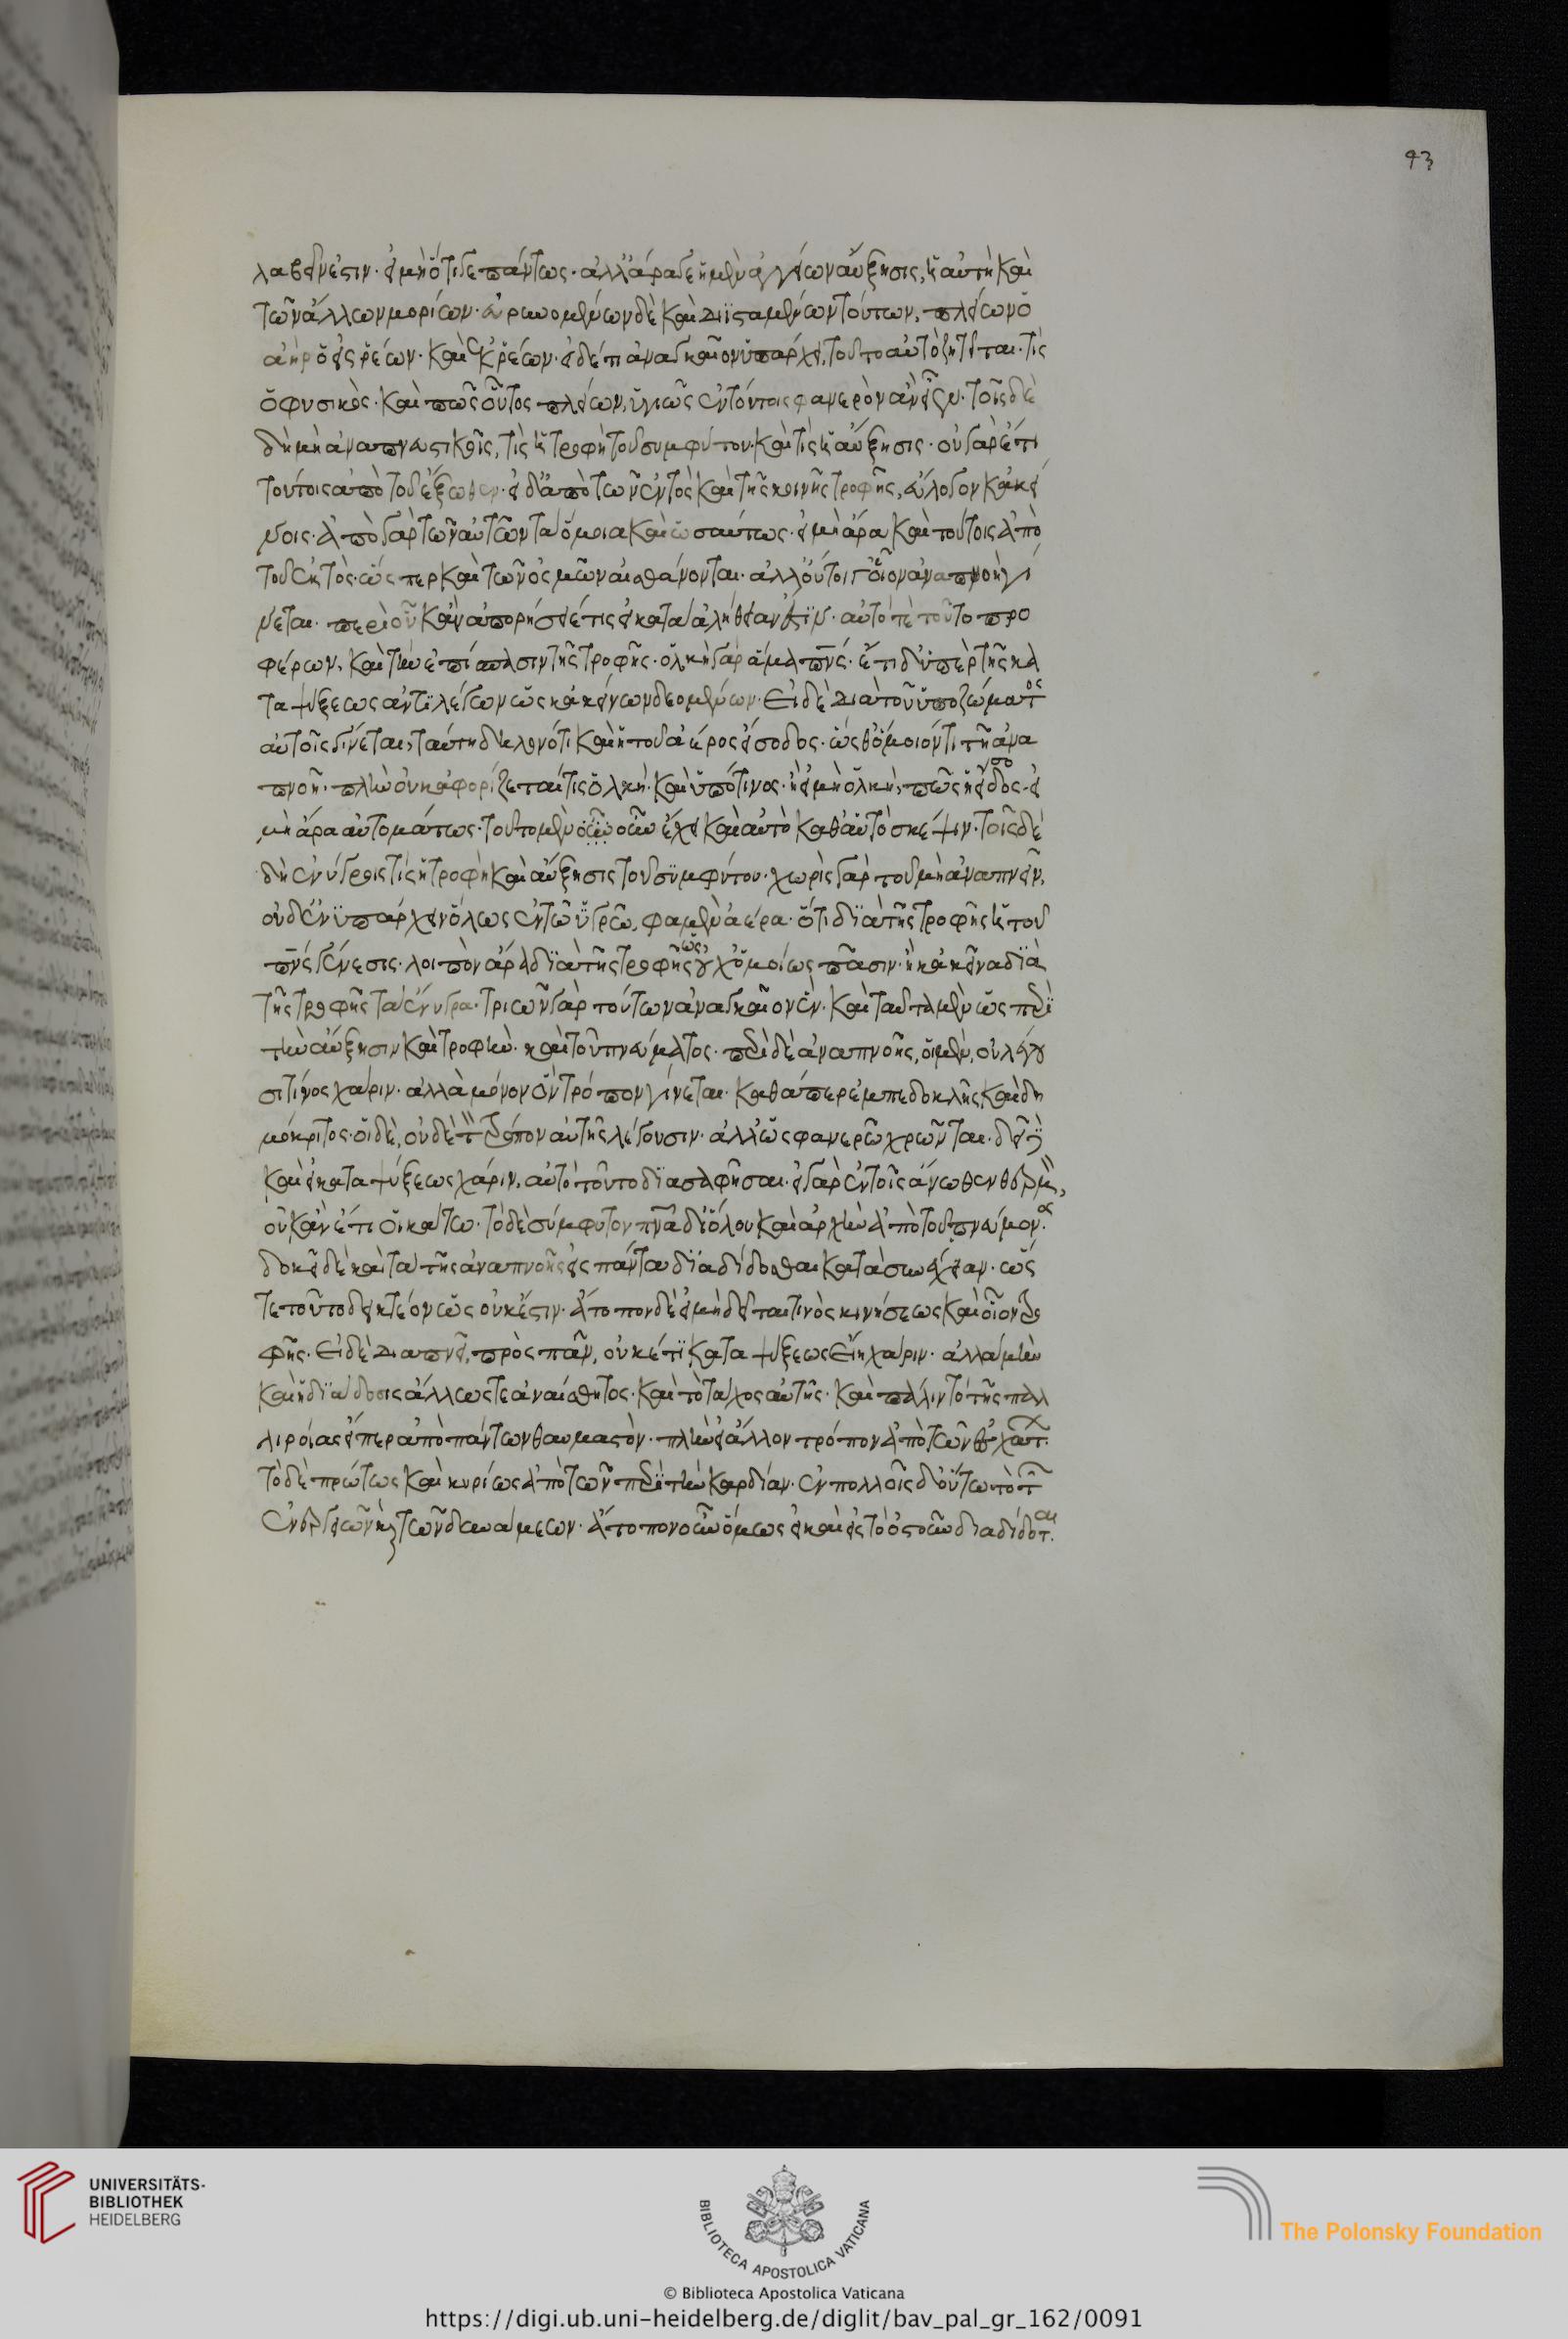 43
λαβεῖν ἐστιν· εἰ μὴ ὅτι γε πάντως· ἀλλ' ἄρά γε ἡ μὲν ἀγγείων αὔξησις, ἡ αὐτὴ καὶ
τῶν ἄλλων μορίων· εὐρυνομένων δὲ καὶ διϊσταμένων τούτων, πλείων ὁ
ἀὴρ ὁ εἰσρέων· καὶ ἐκρέων· εἰ δέ τι ἀναγκαῖον ὑπάρχει, τοῦτο αὐτὸ ζητεῖται· τίς
ὁ φυσικὸς· καὶ πῶς οὗτος πλείων, ὑγιῶς ἐν τούτοις φανερὸν ἂν εἴη· τοῖς δὲ
δὴ μὴ ἀναπνευστικοῖς, τίς ἡ τροφὴ τοῦ συμφύτου· καὶ τίς ἡ αὔξησις· οὐ γὰρ ἔτι
τούτοις ἀπὸ τοῦ ἔξωθεν· εἰ δ' ἀπὸ τῶν ἐντὸς καὶ τῆς κοινῆς τροφῆς, εὔλογον κἀκεί
νοις· ἀπὸ γὰρ τῶν αὐτῶν τὰ ὅμοια καὶ ὡσαύτως· εἰ μὴ ἄρα καὶ τούτοις ἀπὸ
τοῦ ἐκτὸς· ὥσπερ καὶ τῶν ὀσμῶν αἰσθάνονται· ἀλλ' οὔτοι γ' οἷον ἀναπνοὴ γί
νεται· περὶ οὗ κἂν ἀπορήσειέ τις εἰ κατὰ ἀλήθειαν ἐστὶν· αὐτό τε τοῦτο προ
φέρων, καὶ τὴν ἐπίσπασιν τῆς τροφῆς· ὁλκὴ γὰρ ἅμα πνς· ἔτι δ' ὑπὲρ τῆς κα
ταψύξεως ἀντιλέγων ὡς κἀκείνων δεομένων· Εἰ δὲ διὰ τοῦ ὑποζώματος
αὐτοῖς γίνεται, ταύτῃ δηλονότι καὶ ἡ τοῦ ἀέρος εἴσοδος· ὥσθ' ὅμοιόν τι τῇ ἀνα
πνοῇ· πλὴν οὐκ ἀφορίζεται τίς ὁλκή· καὶ ὑπό τινος· ἢ εἰ μὴ ὁλκή, πῶς ἡ εἴσοδος· εἰ
μὴ ἄρα αὐτομάτως· τοῦτο μὲν οὖν οὖν ἔχει καὶ αὐτὸ καθ' αὑτὸ σκέψιν· τοῖς δὲ
δὴ ἐνύγροις τίς ἡ τροφὴ καὶ αὔξησις τοῦ συμφύτου· χωρὶς γὰρ τοῦ μὴ ἀναπνεῖν,
οὐδ' ἐνϋπάρχειν ὅλως ἐν τῷ ὑγρῷ, φαμὲν ἀέρα· ὅτι διὰ τῆς τροφῆς ἡ τοῦ
πνς γένεσις· λοιπὸν ἄρα διὰ τῆς τροφῆς ὥς οὐχ ὁμοίως πᾶσιν· ἢ κἀκεῖνα διὰ
τῆς τροφῆς τὰ ἔνυγρα· τριῶν γὰρ τούτων ἀναγκαῖον ἕν· καὶ ταῦτα μὲν ὡς περὶ
τὴν αὔξησιν καὶ τροφὴν· καὶ τοῦ πνεύματος· περὶ δὲ ἀναπνοῆς, οἱ μὲν, οὐ λέγου
σι τίνος χάριν· ἀλλὰ μόνον ὃν τρόπον γίνεται· καθάπερ ἐμπεδοκλῆς καὶ δη
μόκριτος· οἱ δὲ, οὐδὲ τ τρόπον αὐτῆς λέγουσιν· ἀλλ' ὡς φανερῷ χρῶνται· δεῖ δὲ
καὶ εἰ καταψύξεως χάριν, αὐτὸ τοῦτο διασαφῆσαι· εἰ γὰρ ἐν τοῖς ἄνωθεν θερμ,
οὐκ ἂν ἔτι οἱ κάτω· τὸ δὲ σύμφυτον πνα δι' ὅλου καὶ ἀρχὴν ἀπὸ τοῦ πνεύμον·
δοκεῖ δὲ καὶ τὰ τῆς ἀναπνοῆς εἰς πάντα διαδίδοσθαι κατὰ συνέχειαν· ὥσ
τε τοῦτο δεικτέον ὡς οὐκ ἔστιν· ἄτοπον δὲ εἰ μὴ δεῖταί τινὸς κινήσεως καὶ οἷον τρο
φῆς· Εἰ δὲ διαπνεῖ, πρὸς πᾶν, οὐκέτι καταψύξεως εἴη χάριν· ἀλλὰ μὴν
καὶ ἡ διάδοσις ἄλλως τε ἀναίσθητος· καὶ τὸ τάχος αὐτῆς· καὶ πάλιν τὸ τῆς παλ
λιροίας εἴπερ ἀπὸ πάντων θαυμαστὸν· πλὴν εἰ ἄλλον τρόπον ἀπὸ τῶν ἐσχάτ·
τὸ δὲ πρώτως καὶ κυρίως ἀπὸ τῶν περὶ τὴν καρδίαν· ἐν πολλοῖς δ' οὕτω τὸ τ
ἐνεργειῶν καὶ τῶν δυνάμεων· ἄτοπον οὖν ὅμως εἰ καὶ εἰς τὸ ὀστοῦν διαδίδοται.
UNIVERSITÄTS-
BIBLIOTHEK
HEIDELBERG
BIBLIOTECA APOSTOLICA VATICANA
The Polonsky Foundation
© Biblioteca Apostolica Vaticana
https://digi.ub.uni-heidelberg.de/diglit/bav_pal_gr_162/0091